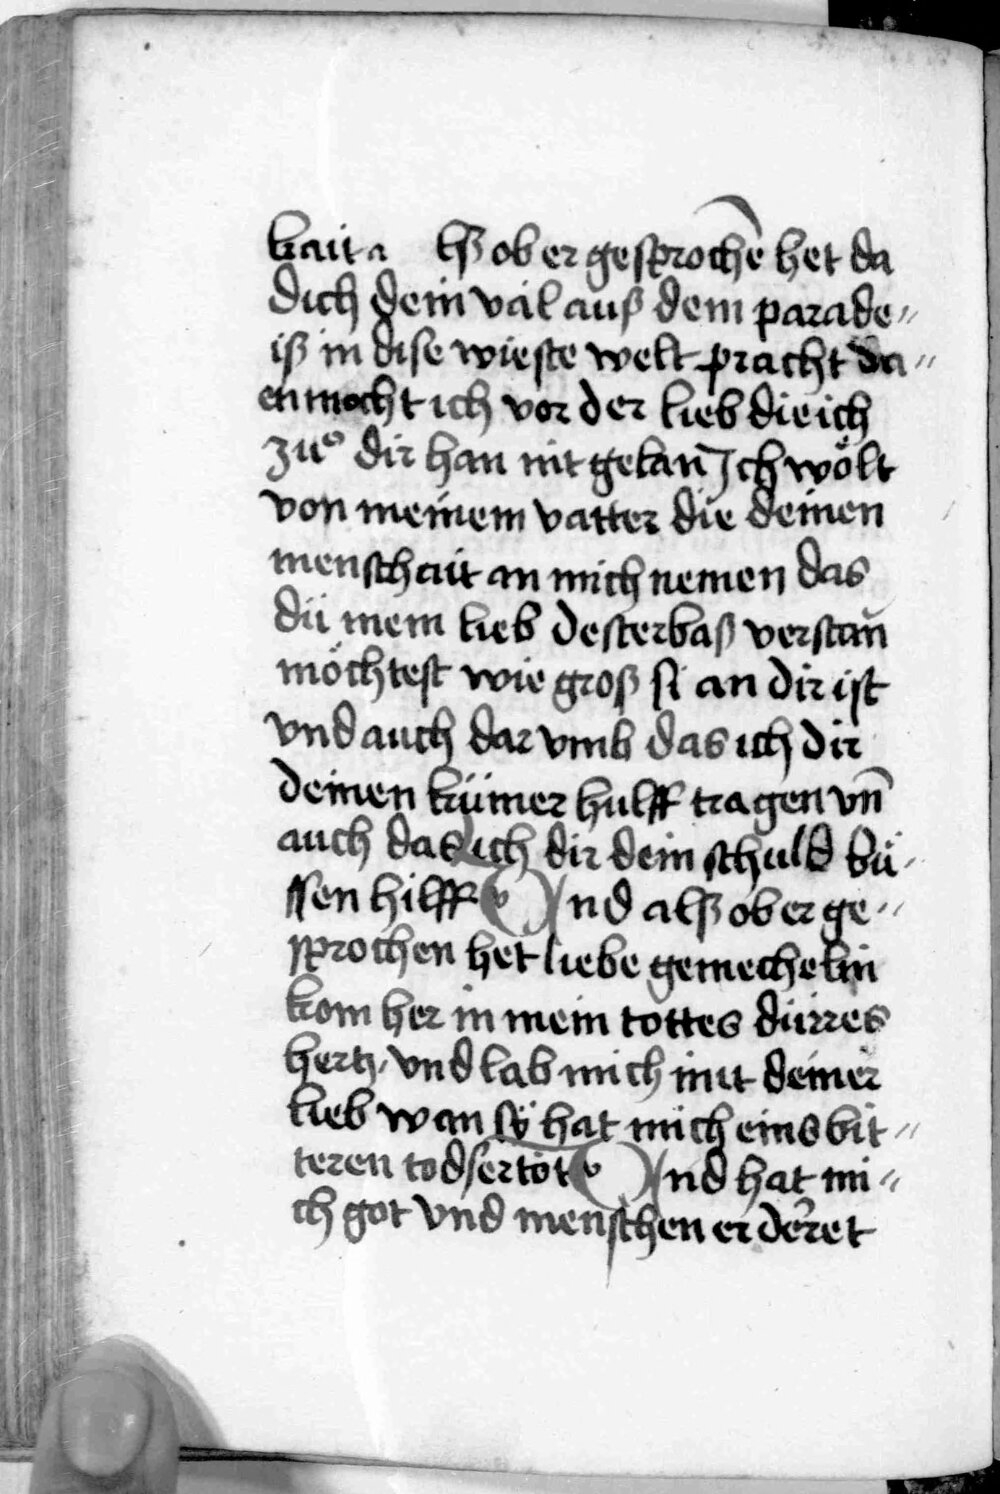 kait a lß ob er gesprochē het da
dich dein val auß dem parade〃
iß in dise wieste welt pracht da〃
en mocht ich vor der lieb die ich
zuͦ dir han nit gelan Ich wölt
von meinem vatter die deinen
menschait an mich nemen das
dü mein lieb desterbaß verstan̄
möchtest wie groß si an dir ist
vnd auch dar vmb das ich dir
deinen kümer hulff tragen vn̄
auch das ich dir dein schuld bü〃
ssen hilff Vnd alß ob er ge〃
sprochen het liebe gemechelin
kom her in mein tottes dürres
hertz vnd lab mich mit deiner
lieb wan sÿ hat mich eins bit〃
teren tods ertöt Vnd hat mi〃
ch got vnd menschen er deret